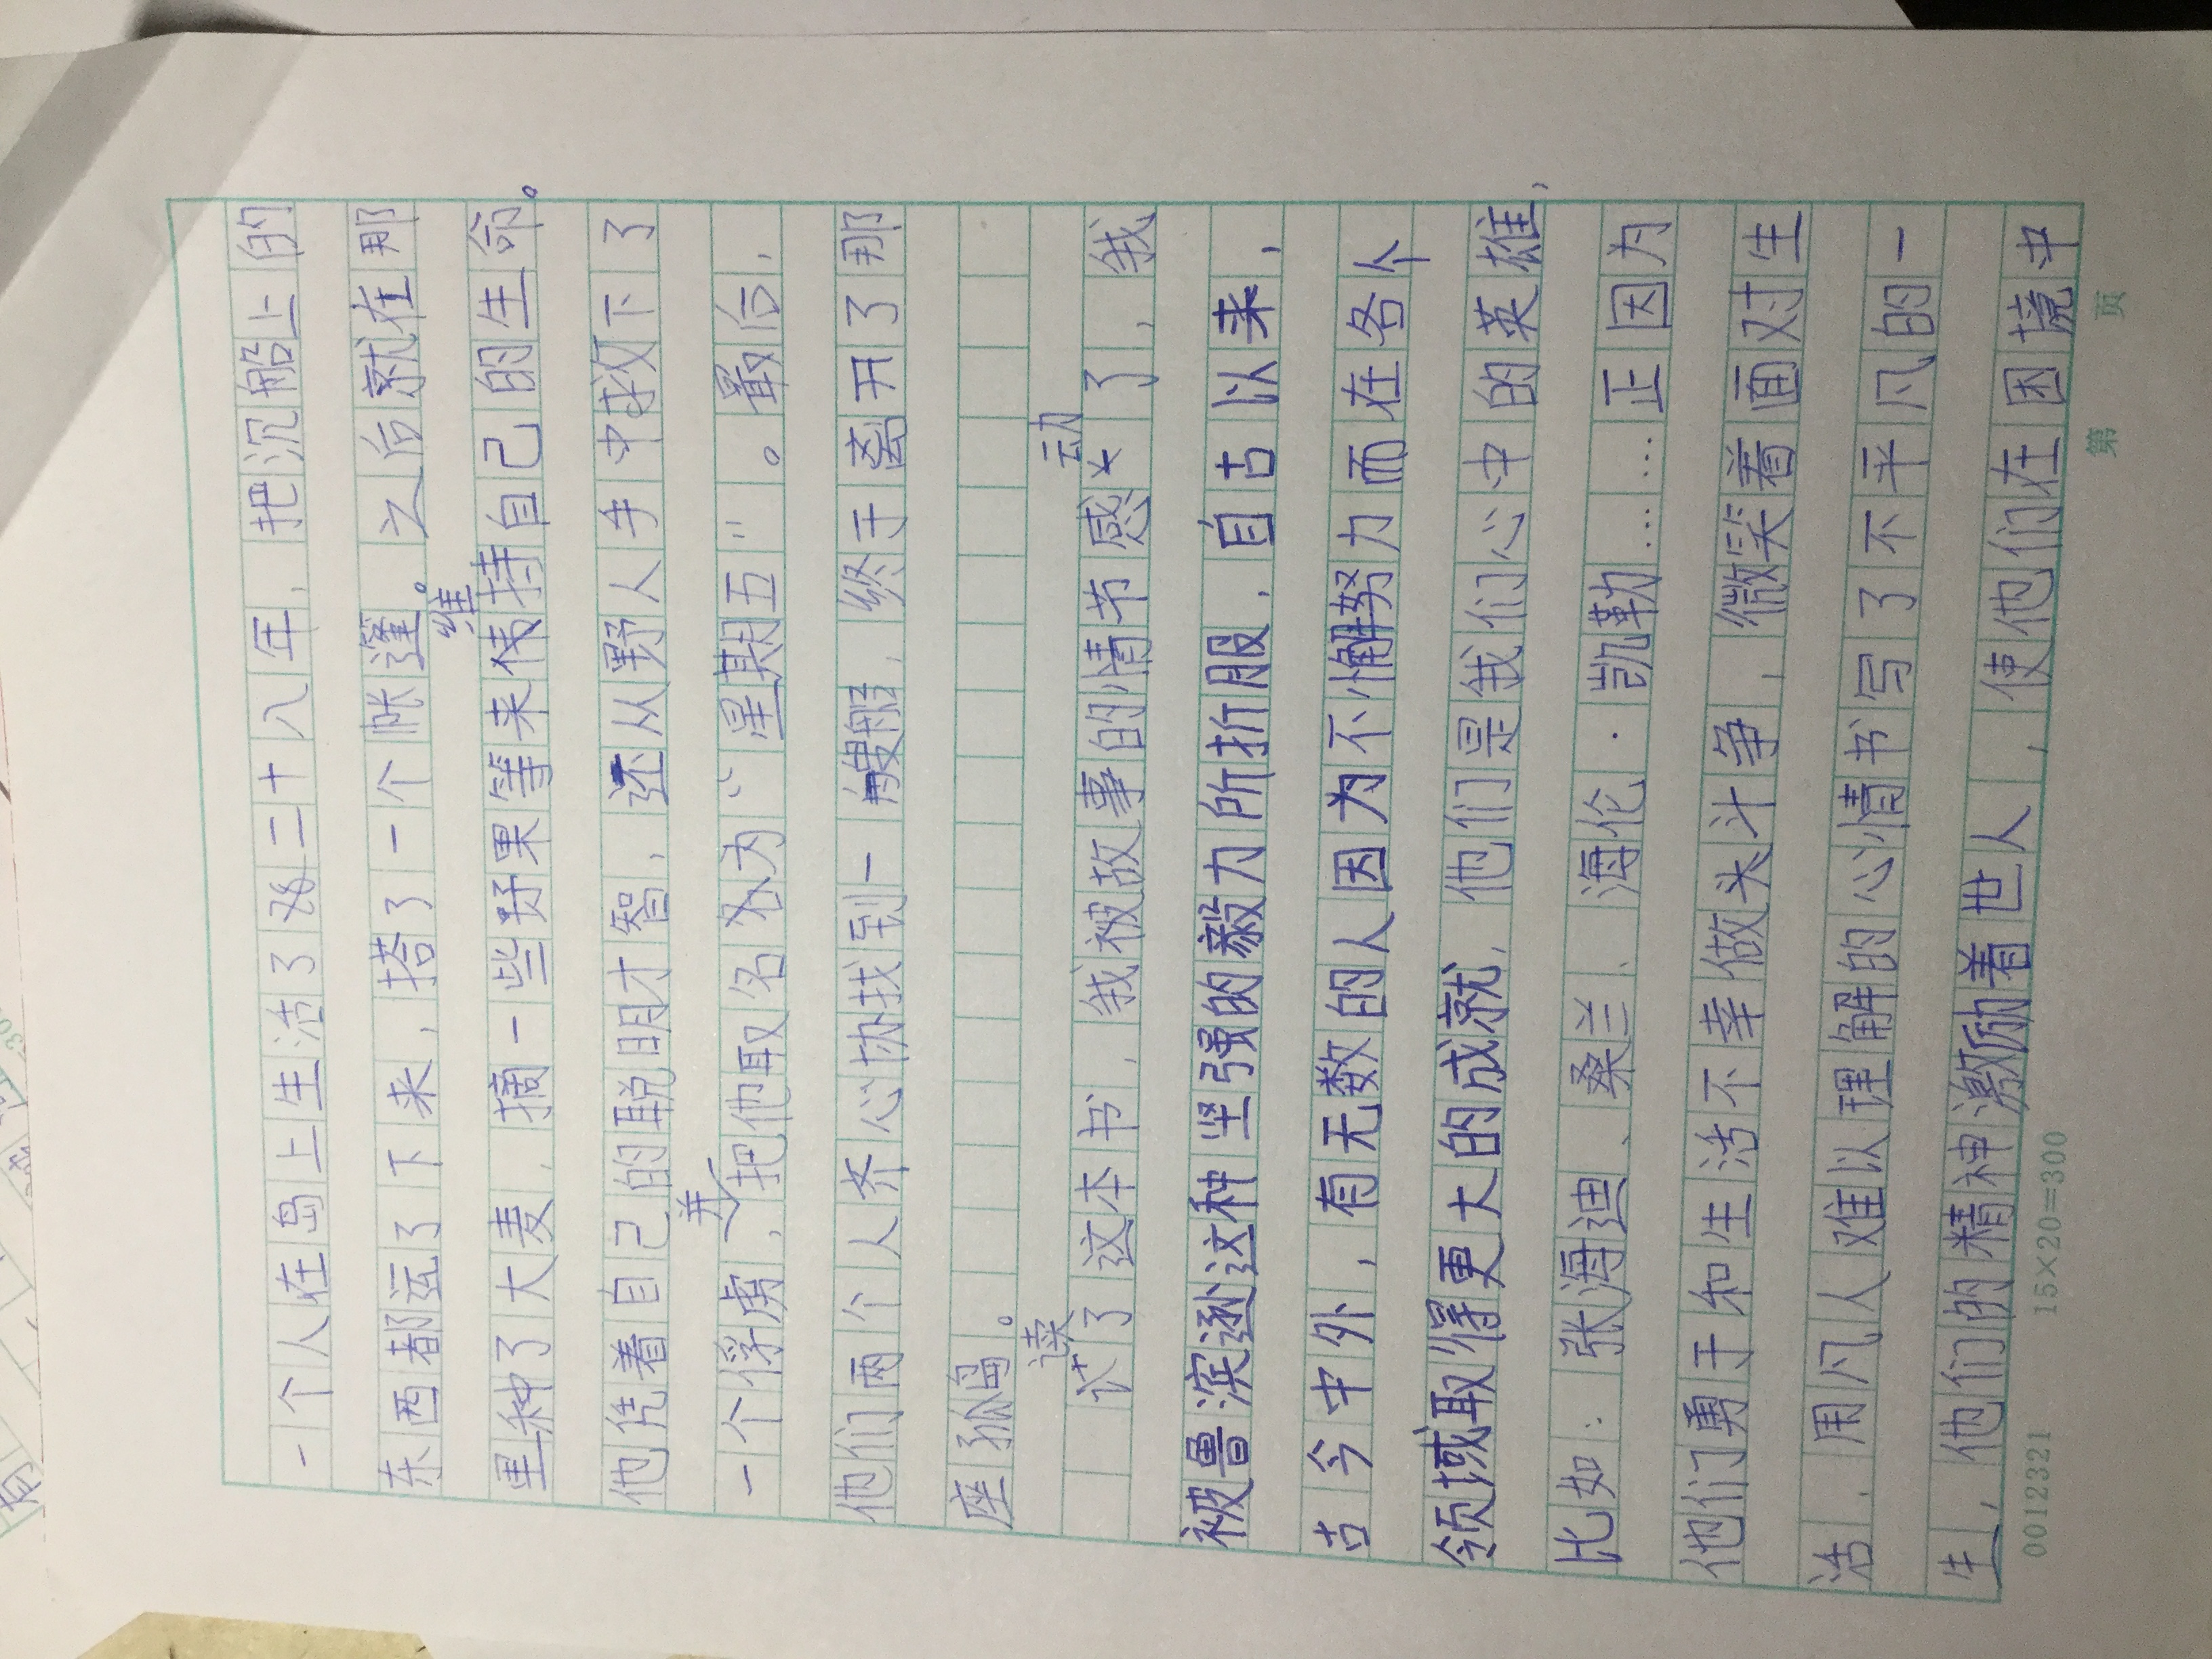 一个人在岛上生活了二十八年，把沉船上的
东西都运了下来，搭了一个帐篷。之后就在那
里种了大麦，摘一些野果等来维持自己的生命。
他凭着自己的聪明才智，还从野人手中救下了
一个俘虏，并把他取名为“星期五”。最后，
他们两个人齐心协找到一艘船，终于离开了那
座孤岛。
读了这本书，我被故事的情节感动了，我
被鲁滨逊这种坚强的毅力所折服，自古以来，
古今中外，有无数的人因为不懈努力而在各个
领域取得更大的成就，他们是我们心中的英雄，
比如：张海迪、桑兰、海伦·凯勒……正因为
他们勇于和生活不幸做头斗争，微笑着面对生
活，用凡人难以理解的心情书写了不平凡的一
生，他们的精神激励着世人，使他们在困境中
0012321 15×20=300 第 页